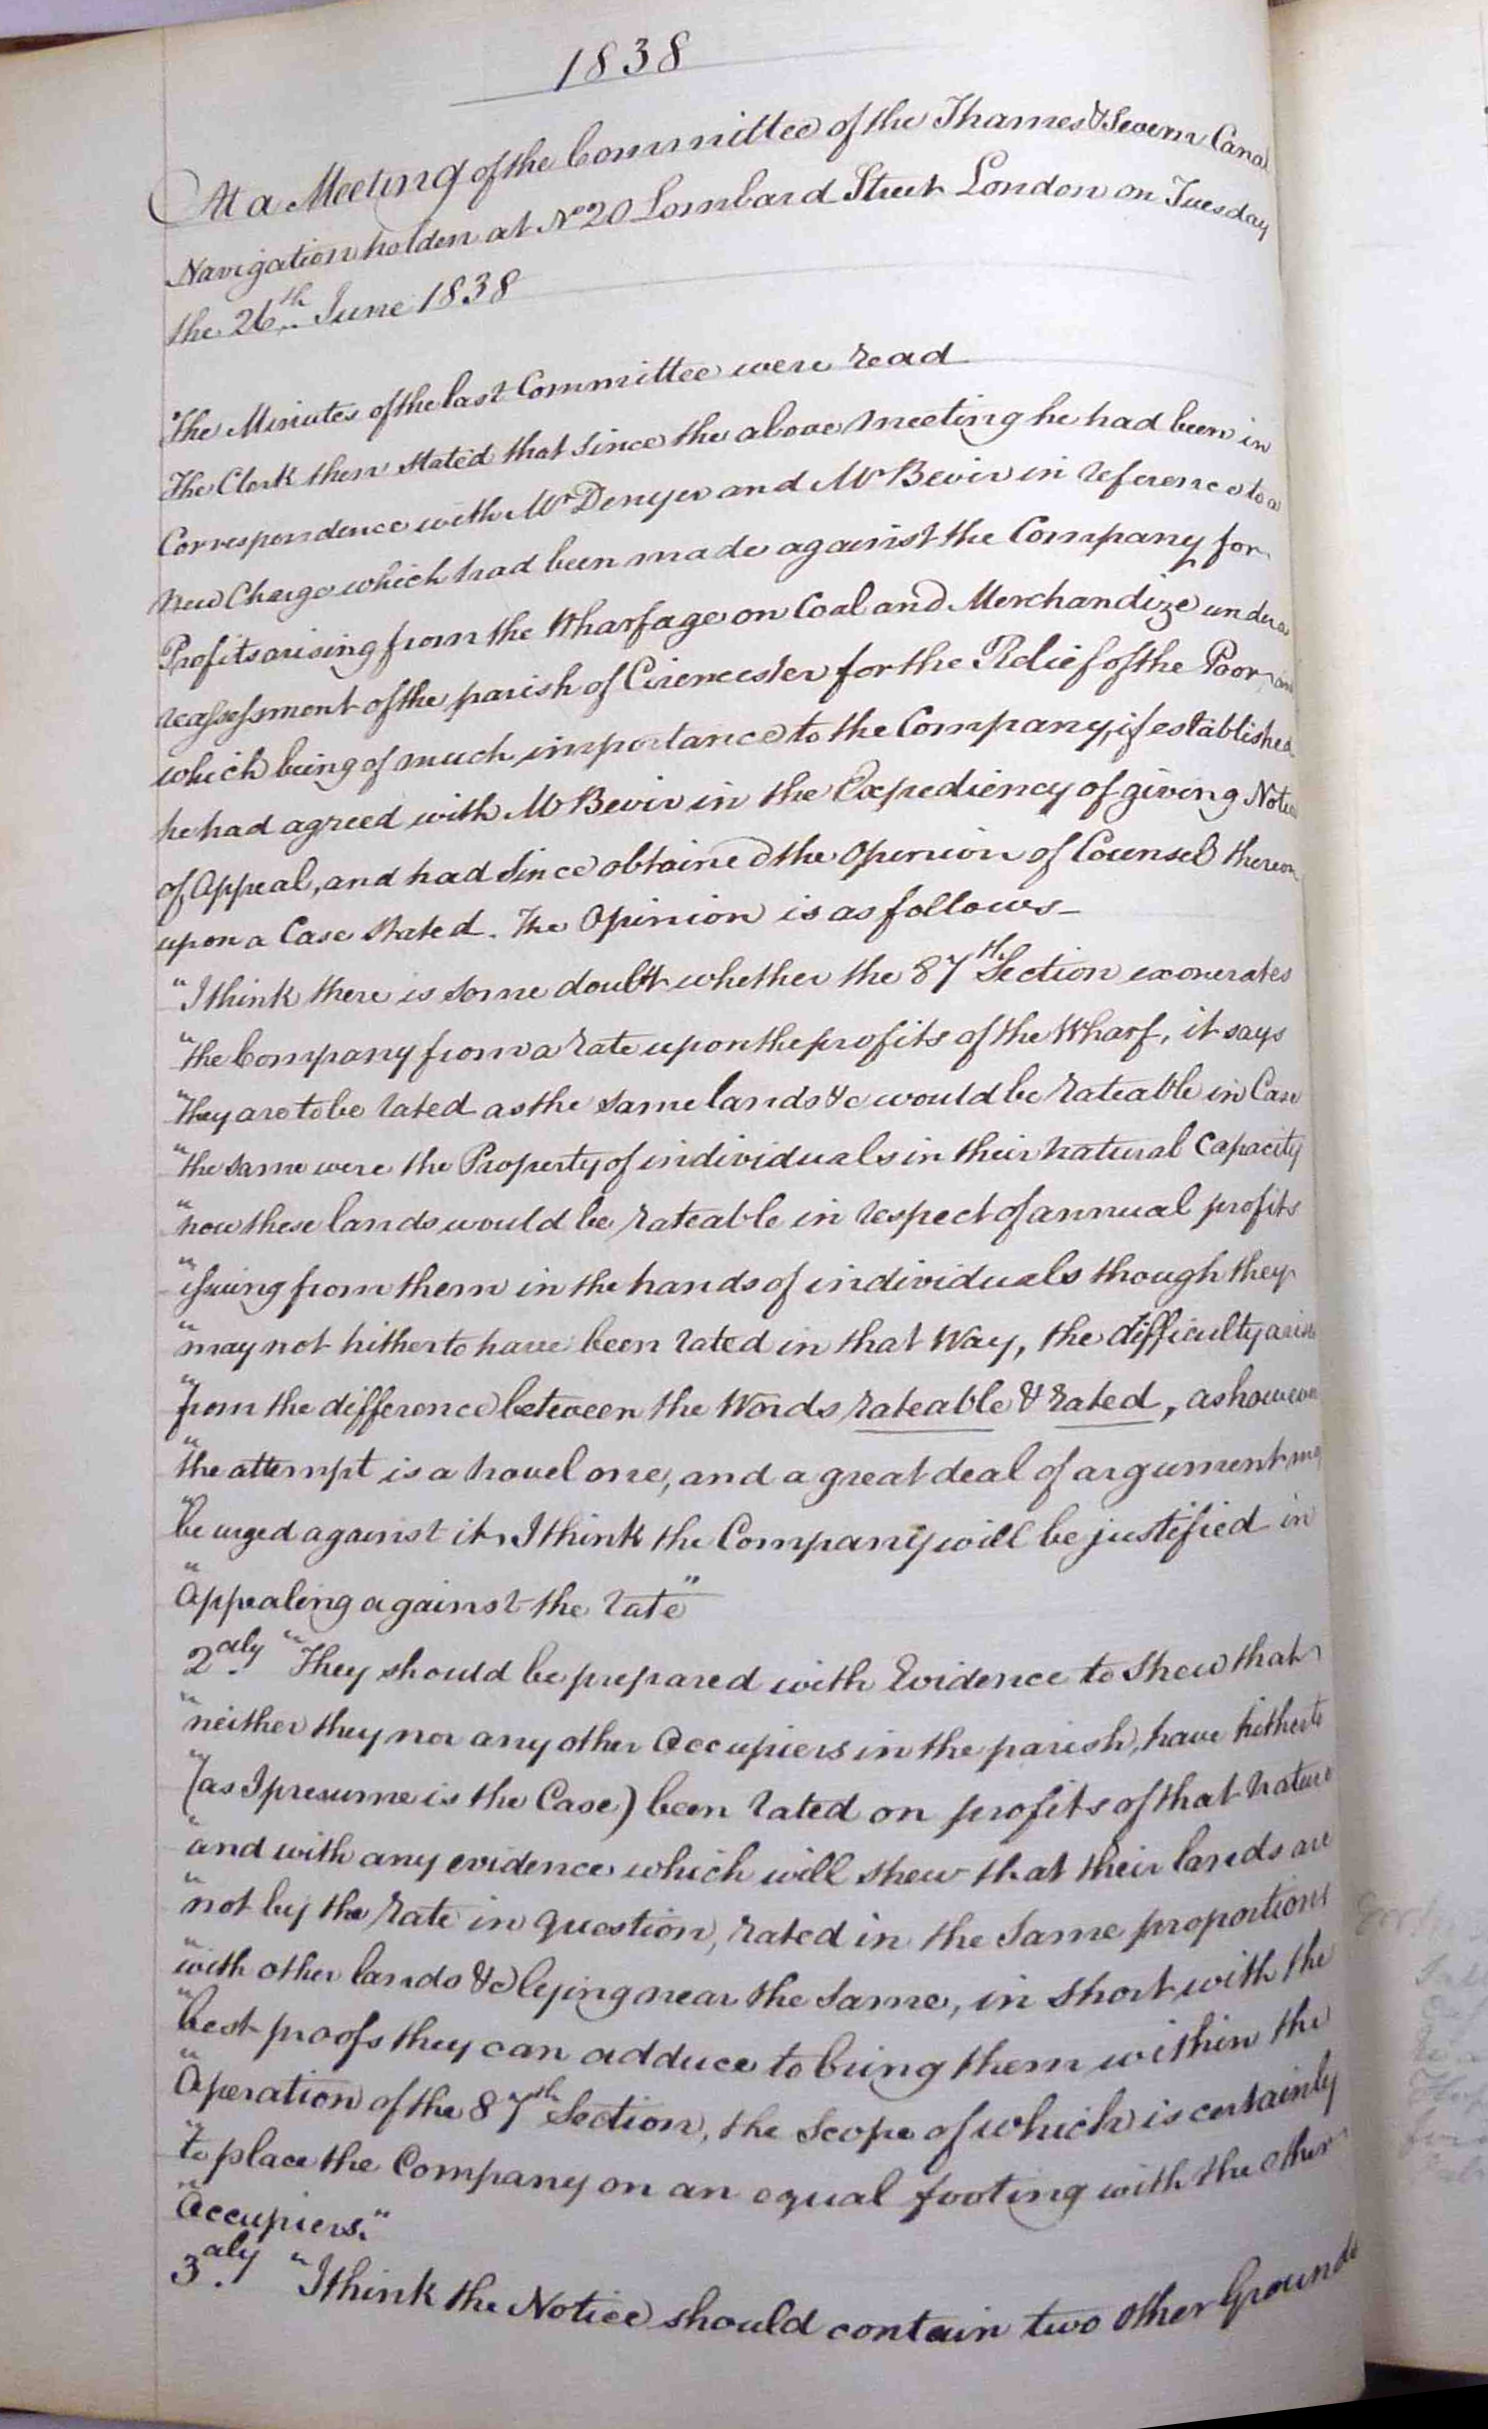 1838
At a Meeting of the Committee of the Thames & Severn Canal
Navigation holden at No. 20 Lombard Street London on Tuesday
the 26th June 1838
The Minutes of the last Committee were read
The Clerk then stated that since the above meeting he had been in
Correspondence with Mr Denyer and Mr Bevir in reference to a
new Charge which had been made against the Company for
Profits arising from the Wharfage on Coal and Merchandize under a
reassessment of the parish of Cirencester for the Relief of the Poor, and
which being of much importance to the Company, if established
he had agreed with Mr Bevir in the Expediency of giving Notice
of Appeal, and had since obtained the Opinion of Counsel thereon
upon a Case stated. The Opinion is as follows_
"I think there is some doubt whether the 87th Section exonerates
"the Company from a rate upon the profits of the Wharf, it says
"they are to be rated as the same lands &c would be rateable in Case
"the same were the Property of individuals in their natural Capacity
"now these lands would be rateable in respect of annual profits
"issuing from them in the hands of individuals though they
"may not hitherto have been rated in that Way, the difficulty arises
"from the difference between the Words rateable & rated, as however
"the attempt is a novel one, and a great deal of argument may
"be urged against it, I think the Company will be justified in
"Appealing against the rate"
2dly "They should be prepared with Evidence to shew that
"neither they nor any other Occupiers in the parish, have hitherto
"(as I presume is the Case) been rated on profits of that nature
"and with any evidence which will shew that their lands are
"not by the rate in question, rated in the same proportions
"with other lands &c lying near the same, in short with the
"best proofs they can adduce to bring them within the
"Operation of the 87th Section, the Scope of which is certainly
"to place the Company on an equal footing with the other
"Occupiers."
3dly "I think the Notice should contain two other Grounds